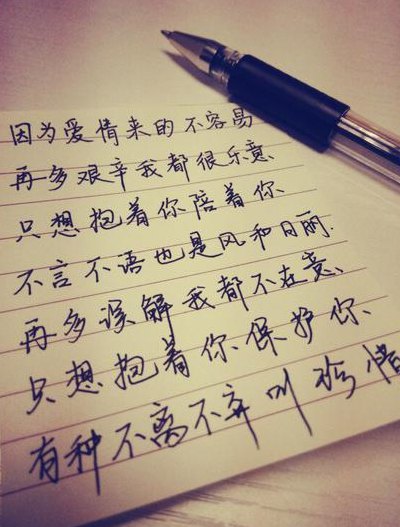 因为爱情来的不容易
再多艰辛我都很乐意
只想抱着你陪着你
不言不语也是风和日丽.
再多误解我都不在意
只想抱着你保护你
有种不离不弃叫珍惜